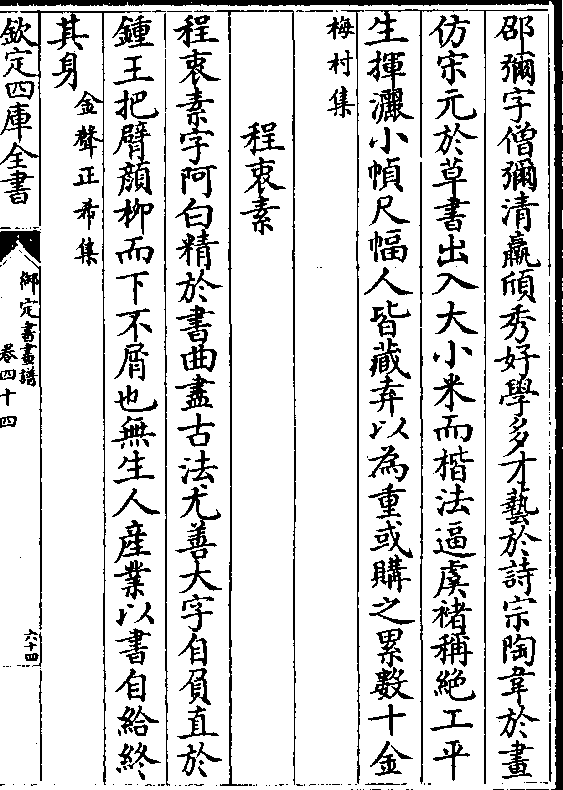 邵彌字僧彌清羸頎秀好學多才藝於詩宗陶韋於畫
仿宋元於草書出入大小米而楷法逼虞褚稱絶工平
生揮灑小幀尺幅人皆藏弆以為重或購之累數十金
梅村集
程衷素
程衷素字阿白精於書曲盡古法尤善大字自負直於
鍾王把臂顔柳而下不屑也無生人産業以書自給終
其身
金聲正希集
欽定四庫全書
御定書畫譜
卷四十四
六十四